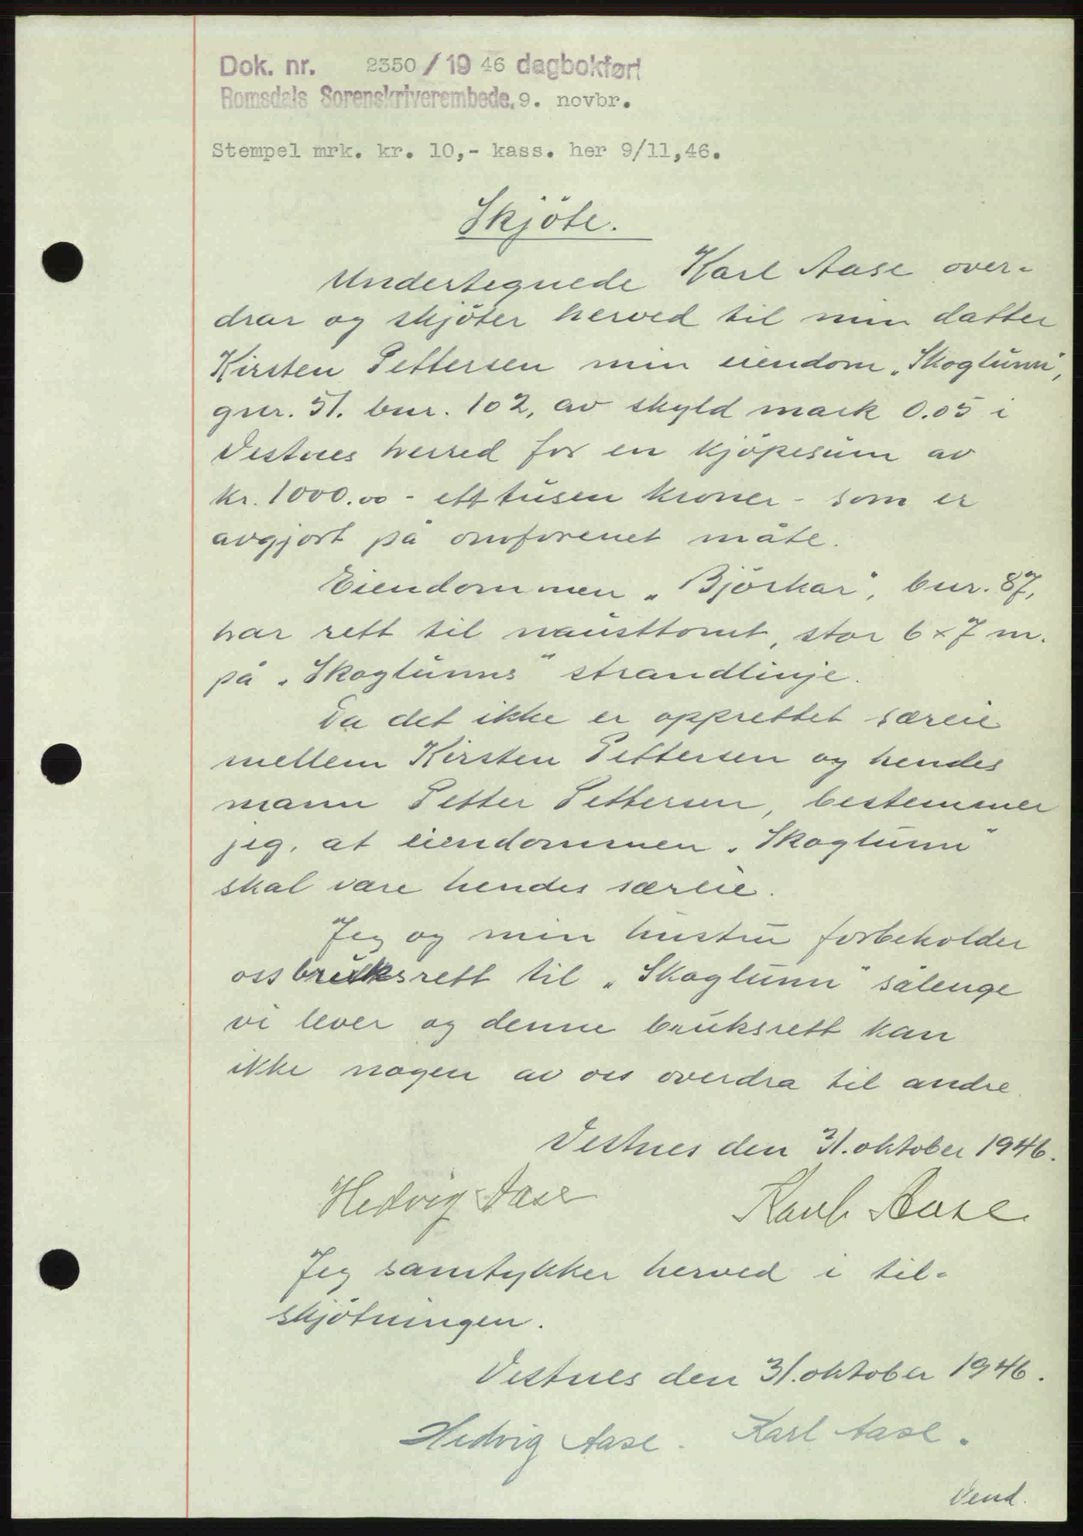 Dok. nr. 2350 / 19 46 dagbokført
Romsdals Sorenskriverembede. 9. novbr.
Stempel mrk. kr. 10,- kass. her 9/11,46.
Skjöte.
Undertegnede Karl Aase over-
drar og skjöter herved til min datter
Kirsten Pettersen min eiendom „Skoglunn",
gnr. 51. bnr. 102, av skyld mark 0.05 i
Vestnes herred for en kjöpesum av
kr. 1000.00 - ett tusen kroner - som er
avgjort på omforenet måte.
Eiendommen „Björkar", bnr. 87,
har rett til nausttomt, stor 6 x 7 m.
på „Skoglunns" strandlinje.
Da det ikke er opprettet særeie
mellem Kirsten Pettersen og hendes
mann Petter Pettersen, bestemmer
jeg, at eiendommen „Skoglunn"
skal være hendes særeie.
Jeg og min hustru forbeholder
oss bruksrett til „Skoglunn" sålenge
vi lever og denne bruksrett kan
ikke nogen av oss overdra til andre.
Vestnes den 31. oktober 1946.
Hedvig Aase Karl Aase.
Jeg samtykker herved i til-
skjötningen.
Vestnes den 31. oktober 1946.
Hedvig Aase. Karl Aase.
Vend.